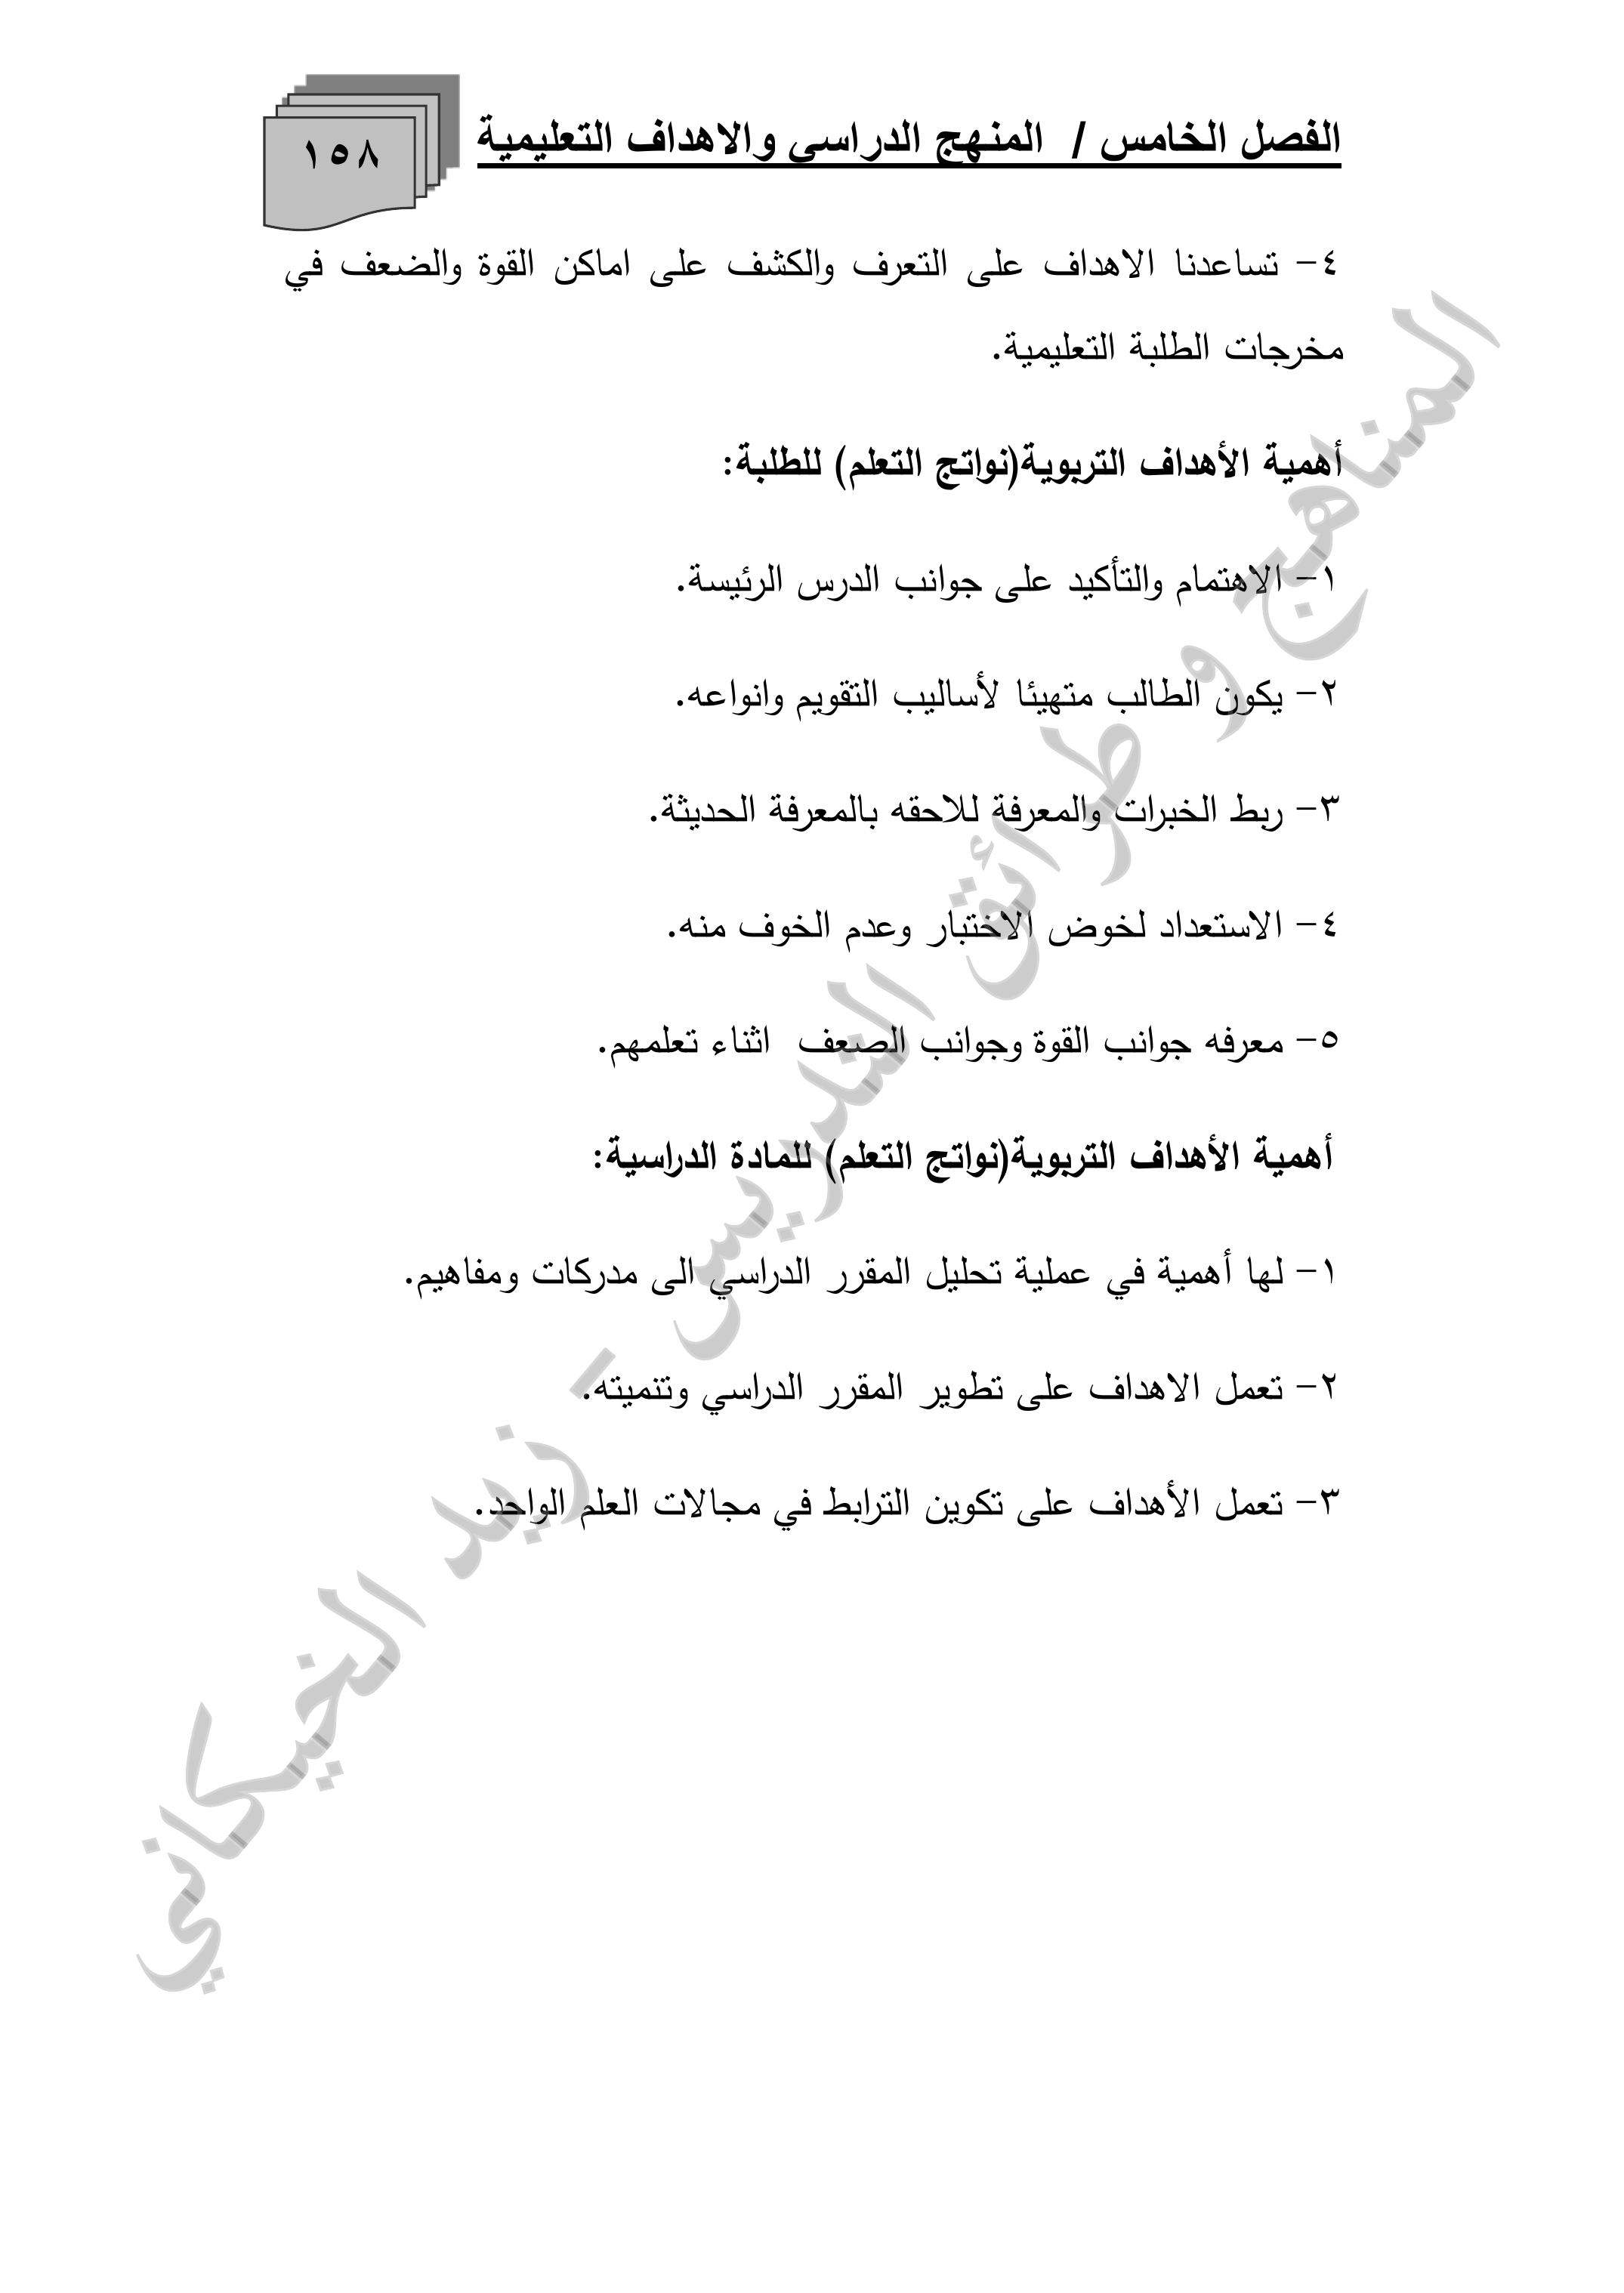 الفصل الخامس / المنهج الدراسي والاهداف التعليمية
١٥٨
٤- تساعدنا الاهداف على التعرف والكشف على اماكن القوة والضعف في
مخرجات الطلبة التعليمية.
أهمية الأهداف التربوية(نواتج التعلم) للطلبة:
١- الاهتمام والتأكيد على جوانب الدرس الرئيسة.
٢- يكون الطالب متهيئا لأساليب التقويم وانواعه.
٣- ربط الخبرات والمعرفة للاحقه بالمعرفة الحديثة.
٤- الاستعداد لخوض الاختبار وعدم الخوف منه.
٥- معرفه جوانب القوة وجوانب الصعف اثناء تعلمهم.
أهمية الأهداف التربوية(نواتج التعلم) للمادة الدراسية:
١- لها أهمية في عملية تحليل المقرر الدراسي الى مدركات ومفاهيم.
٢- تعمل الاهداف على تطوير المقرر الدراسي وتنميته.
٣- تعمل الأهداف على تكوين الترابط في مجالات العلم الواحد.
المناهج و طرائق التدريس - زيد الخيكاني